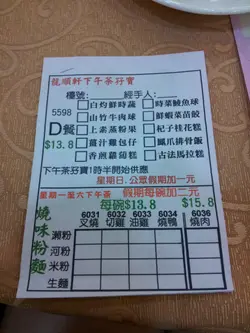 龍順軒下午茶孖寶
檯號:______經手人:______
5598
D餐
$13.8
□白灼鮮時蔬 □時菜鯪魚球
□山竹牛肉球 □鮮蝦菜苗餃
□上素蒸粉果 □杞子桂花糕
□薑汁雞包仔 □鳳爪排骨飯
□香煎蘿蔔糕 □古法馬拉糕
下午茶孖寶1時半開始供應
星期日.公眾假期加一元
星期一至六下午茶 假期每碗加二元
燒味粉麵
每碗$13.8 $15.8
6031 6032 6033 6034 6036
叉燒 切雞 油雞 燒鴨 燒肉
瀨粉
河粉
米粉
生麵